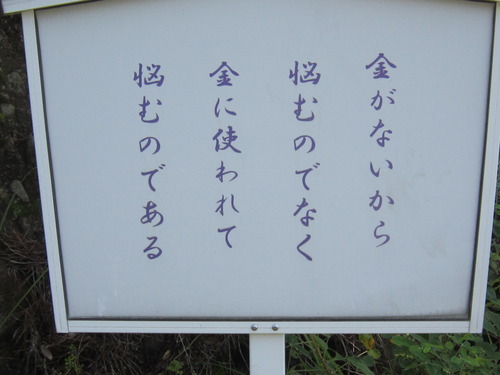 金がないから
悩むのでなく
金に使われて
悩むのである